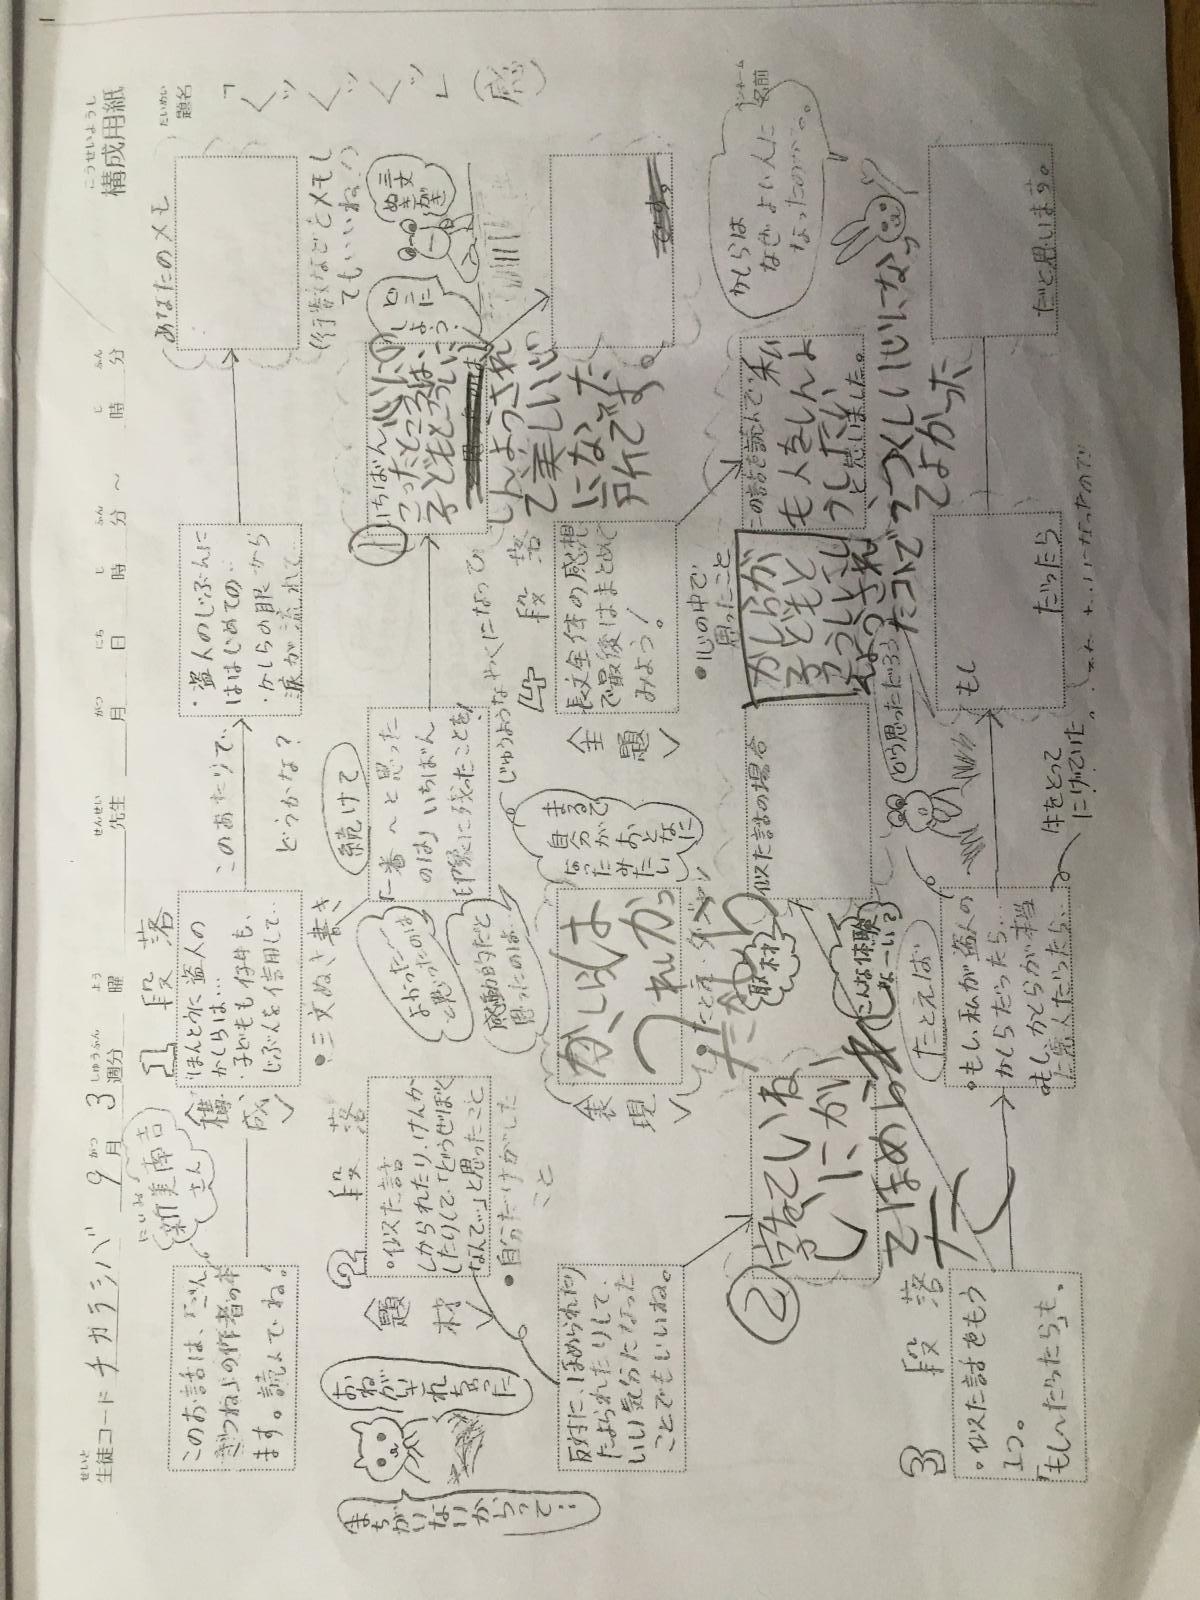 構成用紙
こうせいようし
生徒コード チカラシバ 9月3週分 曜 先生 月 日 時 分 ～ 時 分
題名
「くッくッくッ」
感
名前
このお話は、ごん
ぎつね上の作者の本
ます。読んでね！
新美南吉
さん
にいみ
1
段落
構成
ほんとうに盗人の
かしらは…
・子どもも仔牛も、
じぶんを信用して…
このあたりで…
どうかな？
・盗人のじぶんに
ははじめての…
・かしらの眼から
涙が流れて
あなたのメモ
(行数などとメモし
てもいいね！)
まちがいないからって…
おねがいされちゃった
2
段落
題材
・似た話
しかられたり、けんか
したりして、「どうせぼく
なんて…」と思ったこと
・自分だけがした
こと
・三文ぬき書き
よかったのは
と思ったのは
感動的だと
思ったのは…
続けて
た一番～と思った
のは」いちばん
印象に残ったことを！
じゅうような やくになって
①
いちばん心にの
こったところは、
子どもとこうしに
しんようされ
て美しい心
になった
所です。
どこに
しよう？
三文
ぬき
がき
反対に、ほめられたり
たよられたりして、
いい気分になった
ことでもいいね。
表現
かしらは
うれしかっ
ただろう
たとえ・ダジャレ
まるで
自分が
おとなに
なったみたい
4
段落
主題
長文全体の感想
で最後はまとめて
みよう！
・心の中で
思ったこと
です。
かしらは
なぜよい人に
なったのか…。
②
字をていね
いにかい
てほめられ
た
取材
こんな体験
なーい？
似た話の場合
かしらが
子どもと
こうしにし
んようされ
たコトで
うつくしい心になっ
てよかった
この話を読んで私
も人をしんよ
うしたい
と思いました。
3
段落
・似た話をもう
1つ。
「もし～だったら」も。
たとえば
・もし私が盗人の
かしらだったら…
・もしかしらが本当
に悪人だったら…
どう思っただろう
牛をとって
にげていた。
もし
だったら
だと思います。